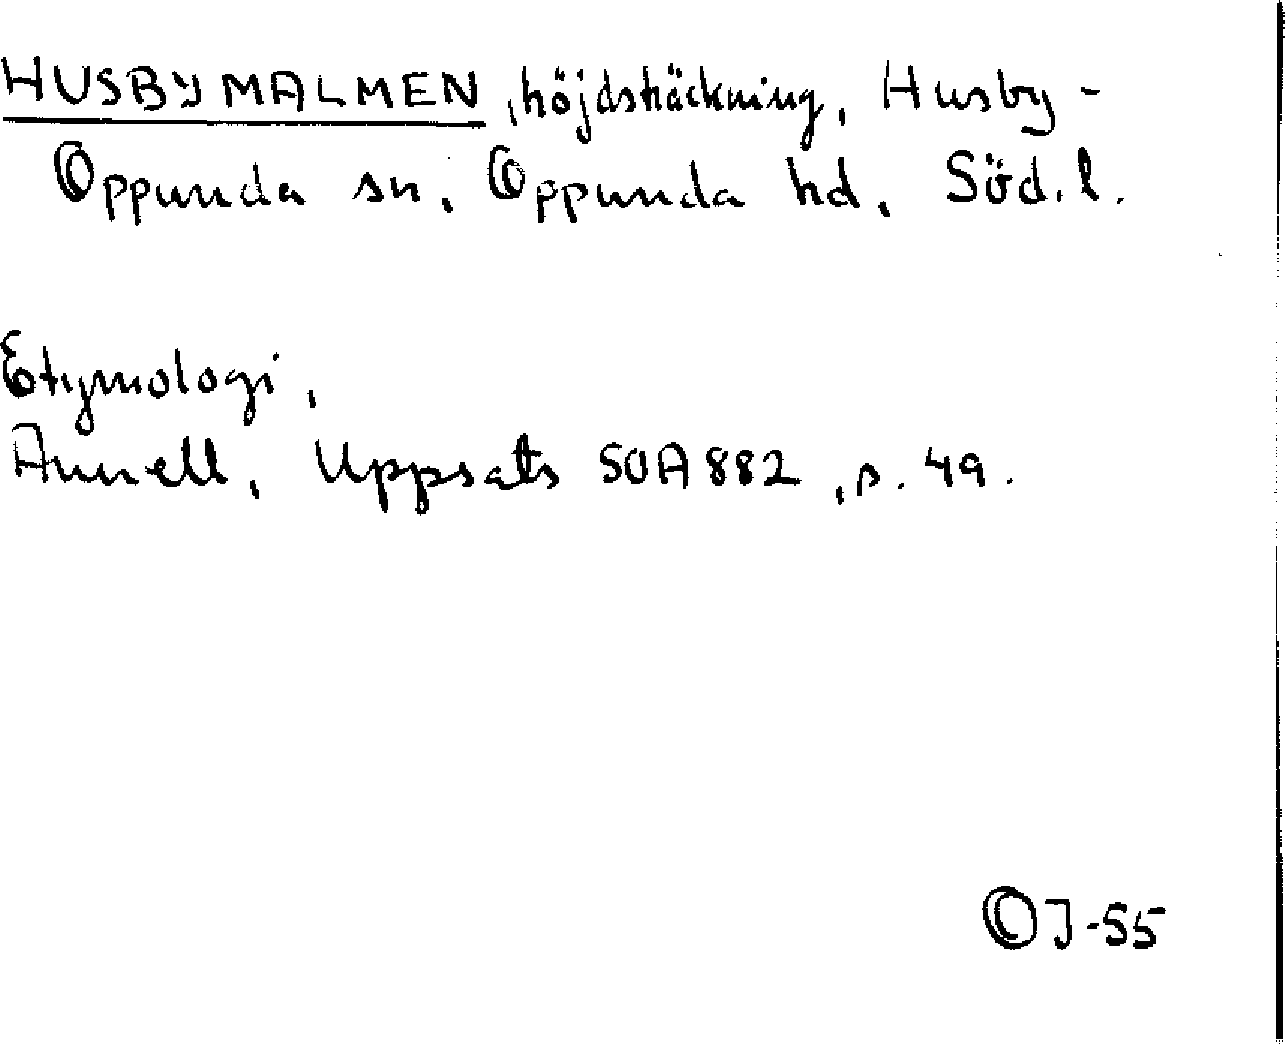 HUSBYMALMEN, höjdsträckning, Husby-
Oppunda sn, Oppunda hd, Söd.l.
Etymologi,
Annell, Uppsats SOA 882, s. 49.
OJ-55